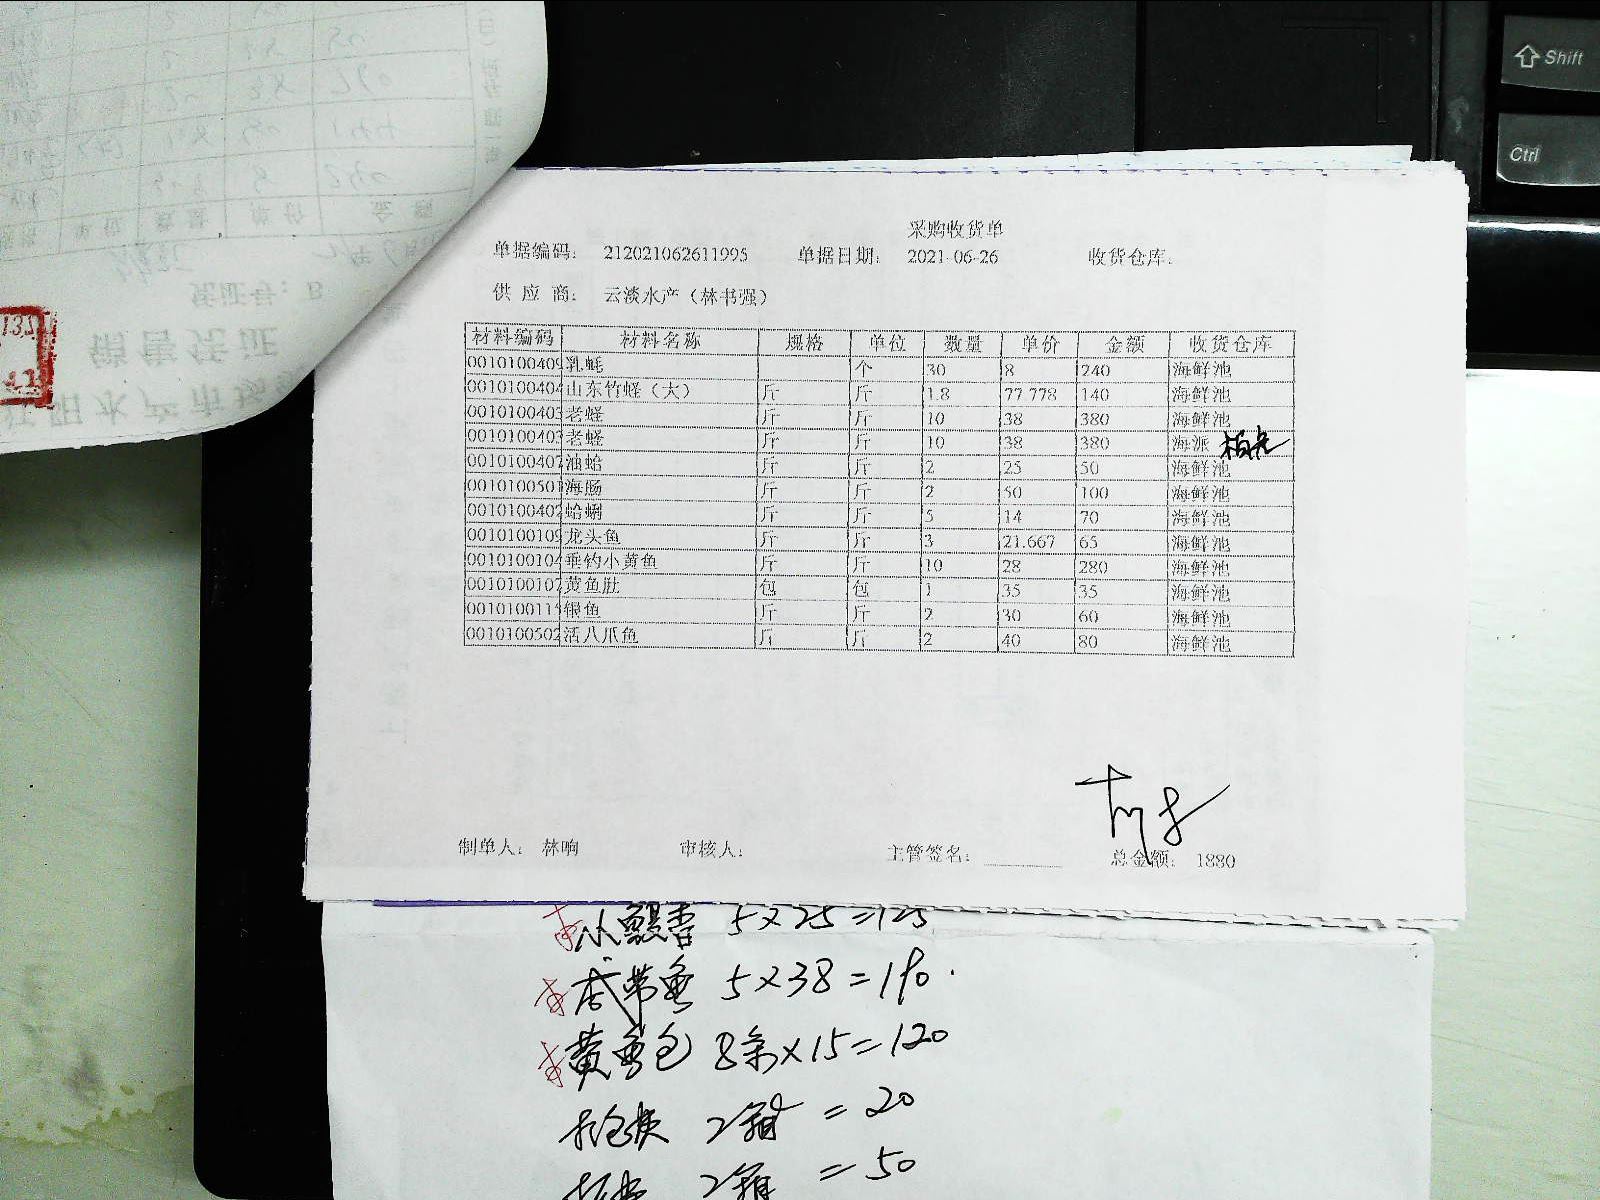 Shift
Ctrl
采购收货单
单据编码: 212021062611995 单据日期: 2021-06-26 收货仓库:
供应商: 云淡水产（林书强）
材料编码 材料名称 规格 单位 数量 单价 金额 收货仓库
0010100409 乳蚝 个 30 8 240 海鲜池
0010100404 山东竹蛏（大） 斤 斤 1.8 77.778 140 海鲜池
0010100403 老蛏 斤 斤 10 38 380 海鲜池
0010100403 老蛏 斤 斤 10 38 380 海派
0010100407 油蛤 斤 斤 2 25 50 海鲜池
0010100501 海肠 斤 斤 2 50 100 海鲜池
0010100402 蛤蜊 斤 斤 5 14 70 海鲜池
0010100109 龙头鱼 斤 斤 3 21.667 65 海鲜池
0010100104 垂钓小黄鱼 斤 斤 10 28 280 海鲜池
0010100107 黄鱼肚 包 包 1 35 35 海鲜池
0010100115 银鱼 斤 斤 2 30 60 海鲜池
0010100502 活八爪鱼 斤 斤 2 40 80 海鲜池
制单人: 林响 审核人: 主管签名: 总金额: 1880
5×25=125
带鱼 5×38=190
黄鱼包 8条×15=120
2箱 =20
2箱 =50